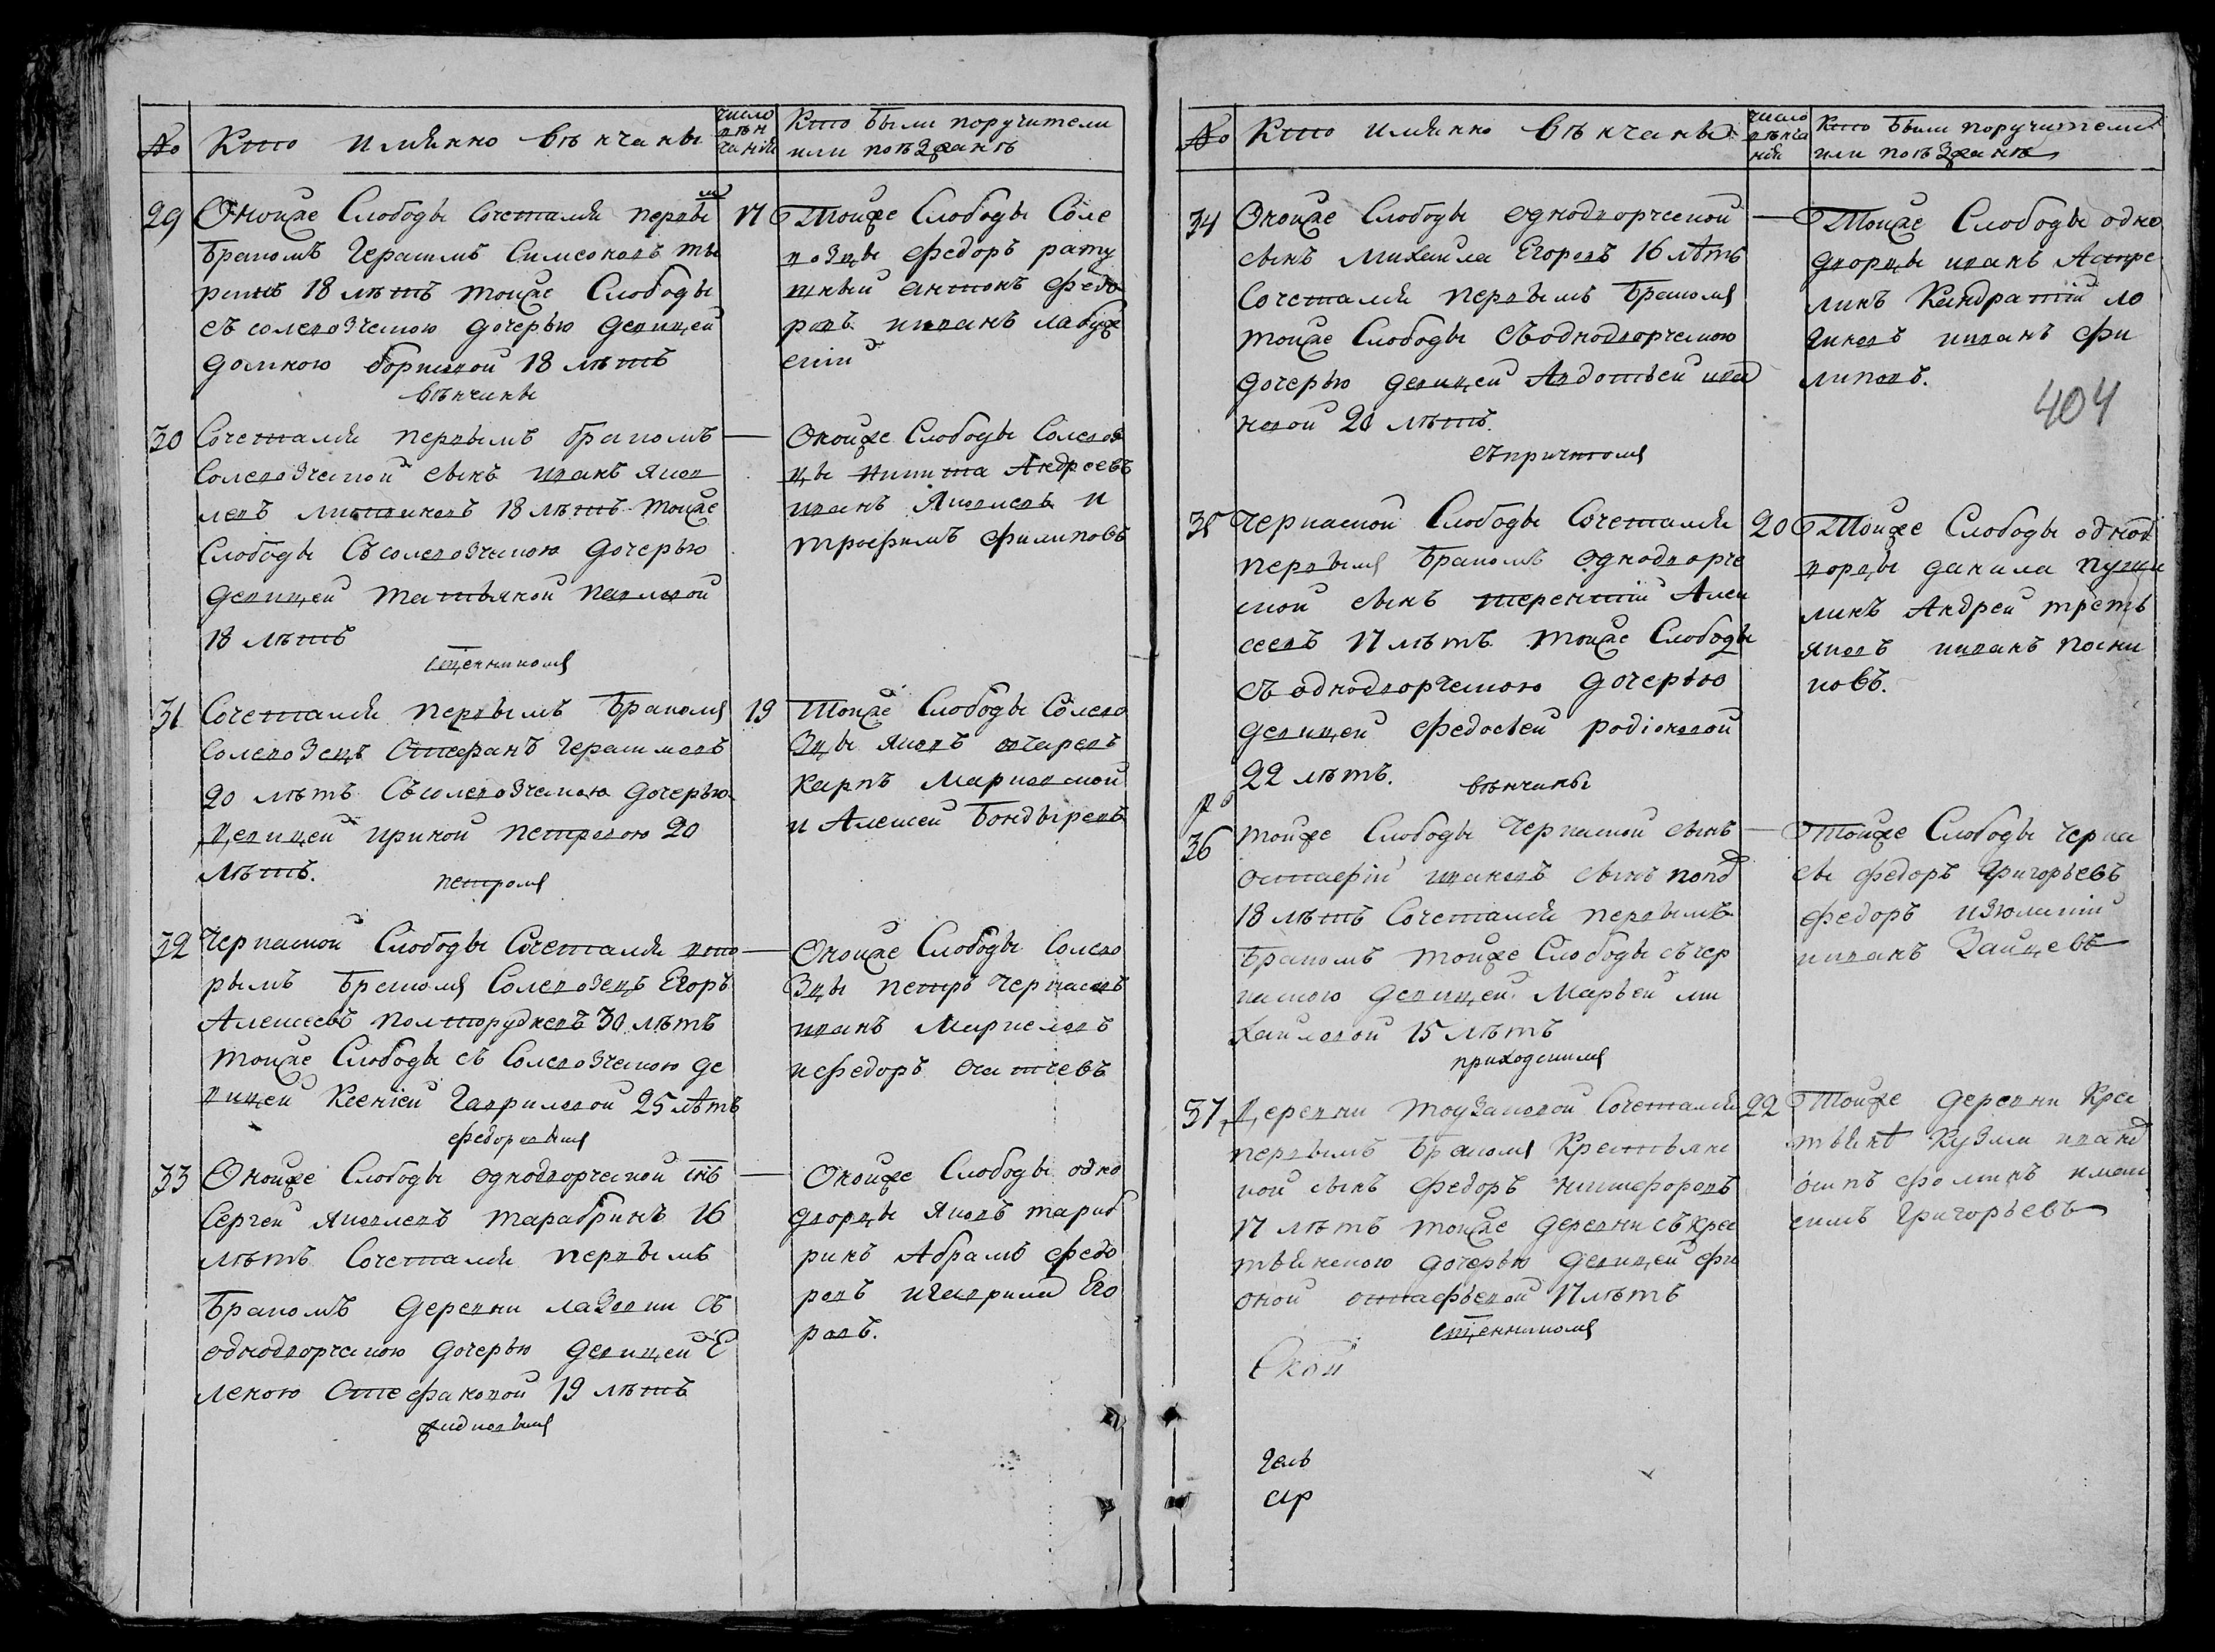 № Кто имянно венчаны
число венчанія
Кто были поручители
или поѣзжанѣ
29 Оноиже Слободы сочетался первы м
бракомъ Герасимъ Симеоновъ
18 лѣтъ тоиже Слободы
съ солевозческою дочерью девицеи
домною борисовои 18 лѣтъ
венчаны
17 Тоиже Слободы Соле
возцы федоръ рату
тныи антонъ федо
ровъ иванъ
30 Сочетался первымъ бракомъ
Солевозческои сынъ иванъ яков
левъ 18 лѣтъ тоиже
Слободы съ солевозческою дочерью
девицеи татьянои павловои
18 лѣтъ
сщенникомъ
Оноиже Слободы Солевоз
цы никита Андреевъ
иванъ яковлевъ и
трофимъ филиповъ
31 Сочетался первымъ бракомъ
Солевозецъ Стефанъ герасимовъ
20 лѣтъ съ солевозческою дочерью
девицеи иринои петровою 20
лѣтъ.
петромъ
19 Тоиже Слободы Солево
зцы яковъ овчаревъ
карпъ
и Алексеи бондыревъ
32 Черкаскои Слободы Сочетался вто
рымъ бракомъ Солевозецъ Егоръ
Алексеевъ полторудневъ 30 лѣтъ
тоиже Слободы съ Солевозческою де
вицеи Ксеніеи Гавриловои 25 лѣтъ
федоровымъ
Оноиже Слободы Солево
зцы петръ черкасовъ
иванъ
ифедоръ
33 Оноиже Слободы однодворческои снъ
Сергеи яковлевъ тарабринъ 16
лѣтъ Сочетался первымъ
бракомъ деревни лазовки съ
однодворческою дочерью девицеи Е
леною Стефановои 19 лѣтъ
Оноиже Слободы одно
дворцы яковъ тараб
ринъ Абрамъ федо
ровъ игаврила Его
ровъ.
№ Кто имянно венчаны
число венчанія
Кто были поручители
или поѣзжанѣ
34 Оноиже Слободы однодворческои
сынъ михаила Егоровъ 16 лѣтъ
Сочетался первымъ бракомъ
тоиже Слободы съ однодворческою
дочерью девицеи Авдотьеи ива
новои 20 лѣтъ.
съпричтомъ
Тоиже Слободы одно
дворцы иванъ Астре
линъ Кандратіи ло
гиновъ ииванъ фи
липовъ.
404
35 Черкаскои Слободы Сочетался
первымъ бракомъ однодворче
скои сынъ терентіи Алек
сеевъ 17 лѣтъ тоиже Слободы
съ однодворческою дочерью
девицеи федосьеи родіоновои
22 лѣтъ.
венчаны
20 Тоиже Слободы однод
ворцы данила пушки
линъ Андреи треть
яковъ ииванъ посни
ковъ.
36 тоиже Слободы черкаскои сынъ
остафіи ивановъ сынъ попо
18 лѣтъ Сочетался первымъ
бракомъ тоиже Слободы съ чер
каскою девицеи марьеи ми
хаиловои 15 лѣтъ
приходскимъ
Тоиже Слободы черка
сы федоръ григорьевъ
федоръ изюмскіи
ииванъ Заицевъ
37 Деревни Сочетался
первымъ бракомъ крестьянс
кои сынъ федоръ никифоровъ
17 лѣтъ тоиже деревни съ крес
тьянскою дочерью девицеи фи
онои остафьевои 17 лѣтъ
сщенникомъ
22 Тоиже деревни крес
тьянѣ кузма ивано
осипъ фоминъ имак
симъ григорьевъ